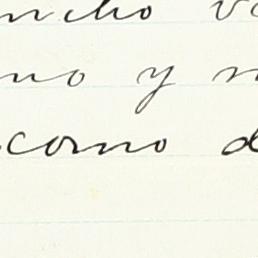 ncho v
no y n
como d